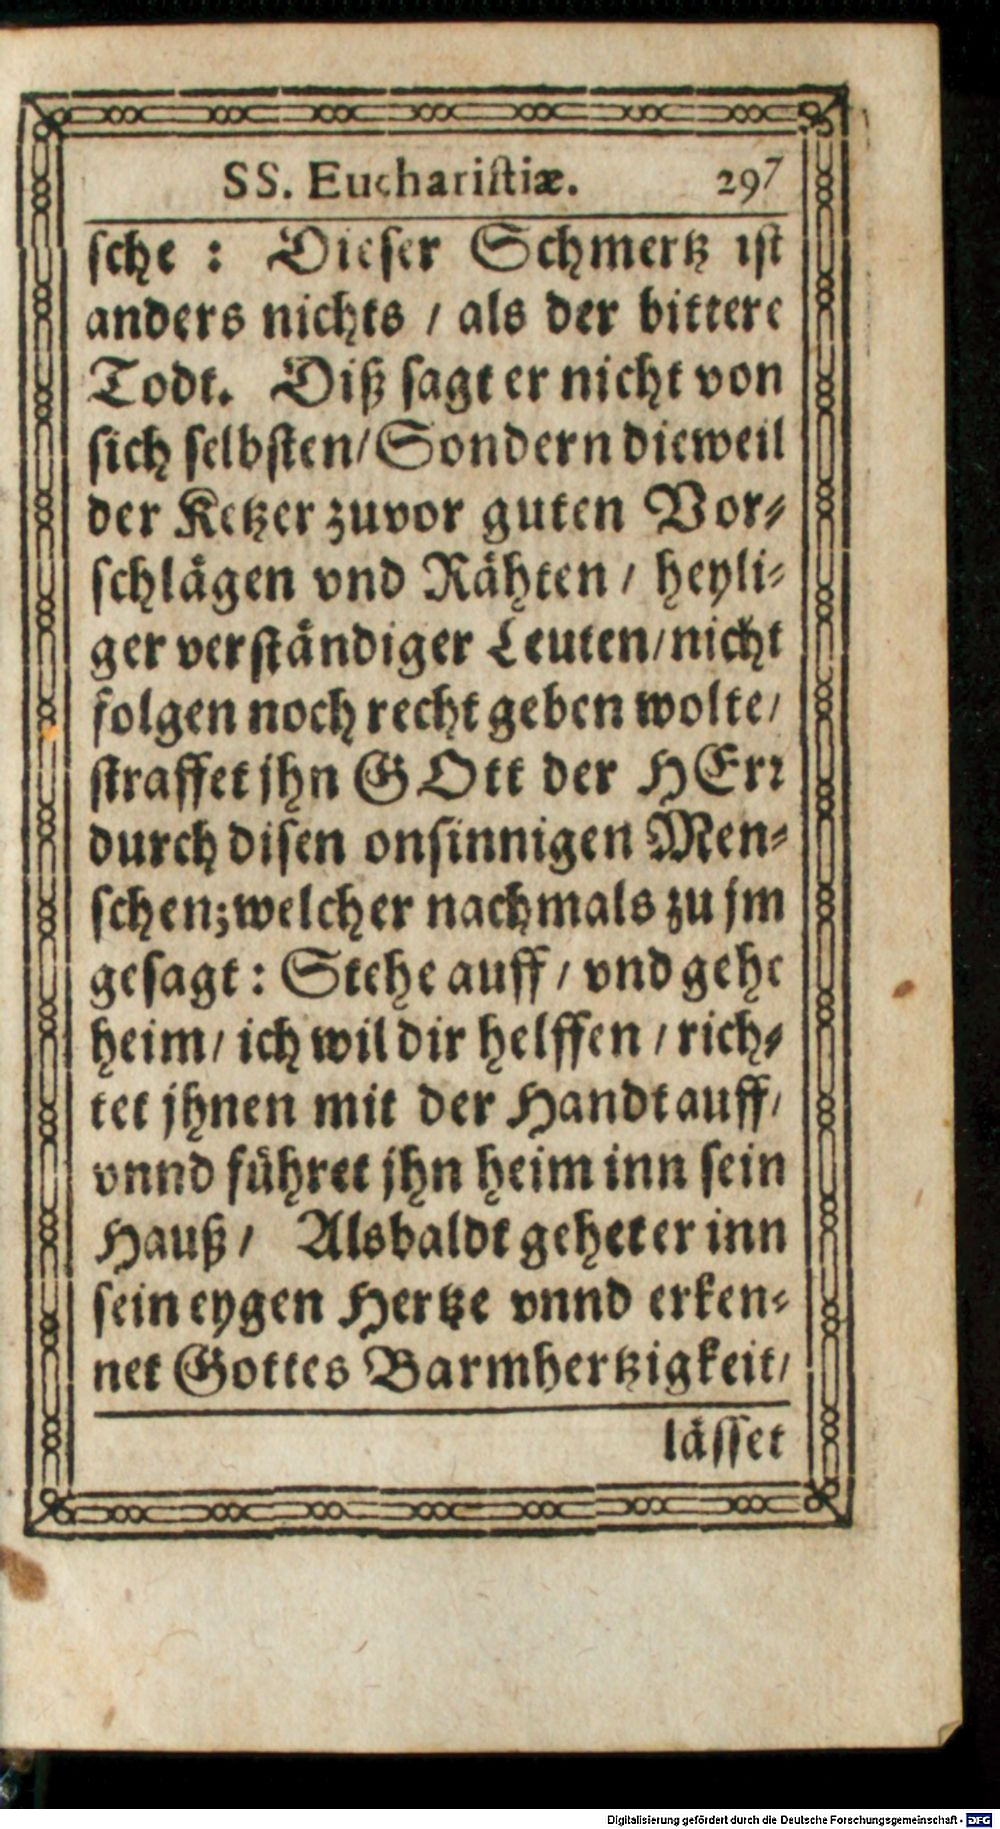 SS. Euchariſtiæ. 297
ſche : Dieſer Schmertz iſt
anders nichts / als der bittere
Todt. Diß ſagt er nicht von
ſich ſelbſten/Sondern dieweil
der Ketzer zuvor guten Vor⸗
ſchlägen vnd Rähten / heyli⸗
ger verſtändiger Leuten/nicht
folgen noch recht geben wolte/
ſtraffet jhn GOtt der HErꝛ
durch diſen onſinnigen Men⸗
ſchen;welcher nachmals zu jm
geſagt: Stehe auff / vnd gehe
heim/ ich wil dir helffen / rich⸗
tet jhnen mit der Handt auff/
vnnd führet jhn heim inn ſein
Hauß / Alsbaldt gehet er inn
ſein eygen Hertze vnnd erken⸗
net Gottes Barmhertzigkeit/
läſſet
Digitalisierung gefördert durch die Deutsche Forschungsgemeinschaft - DFG